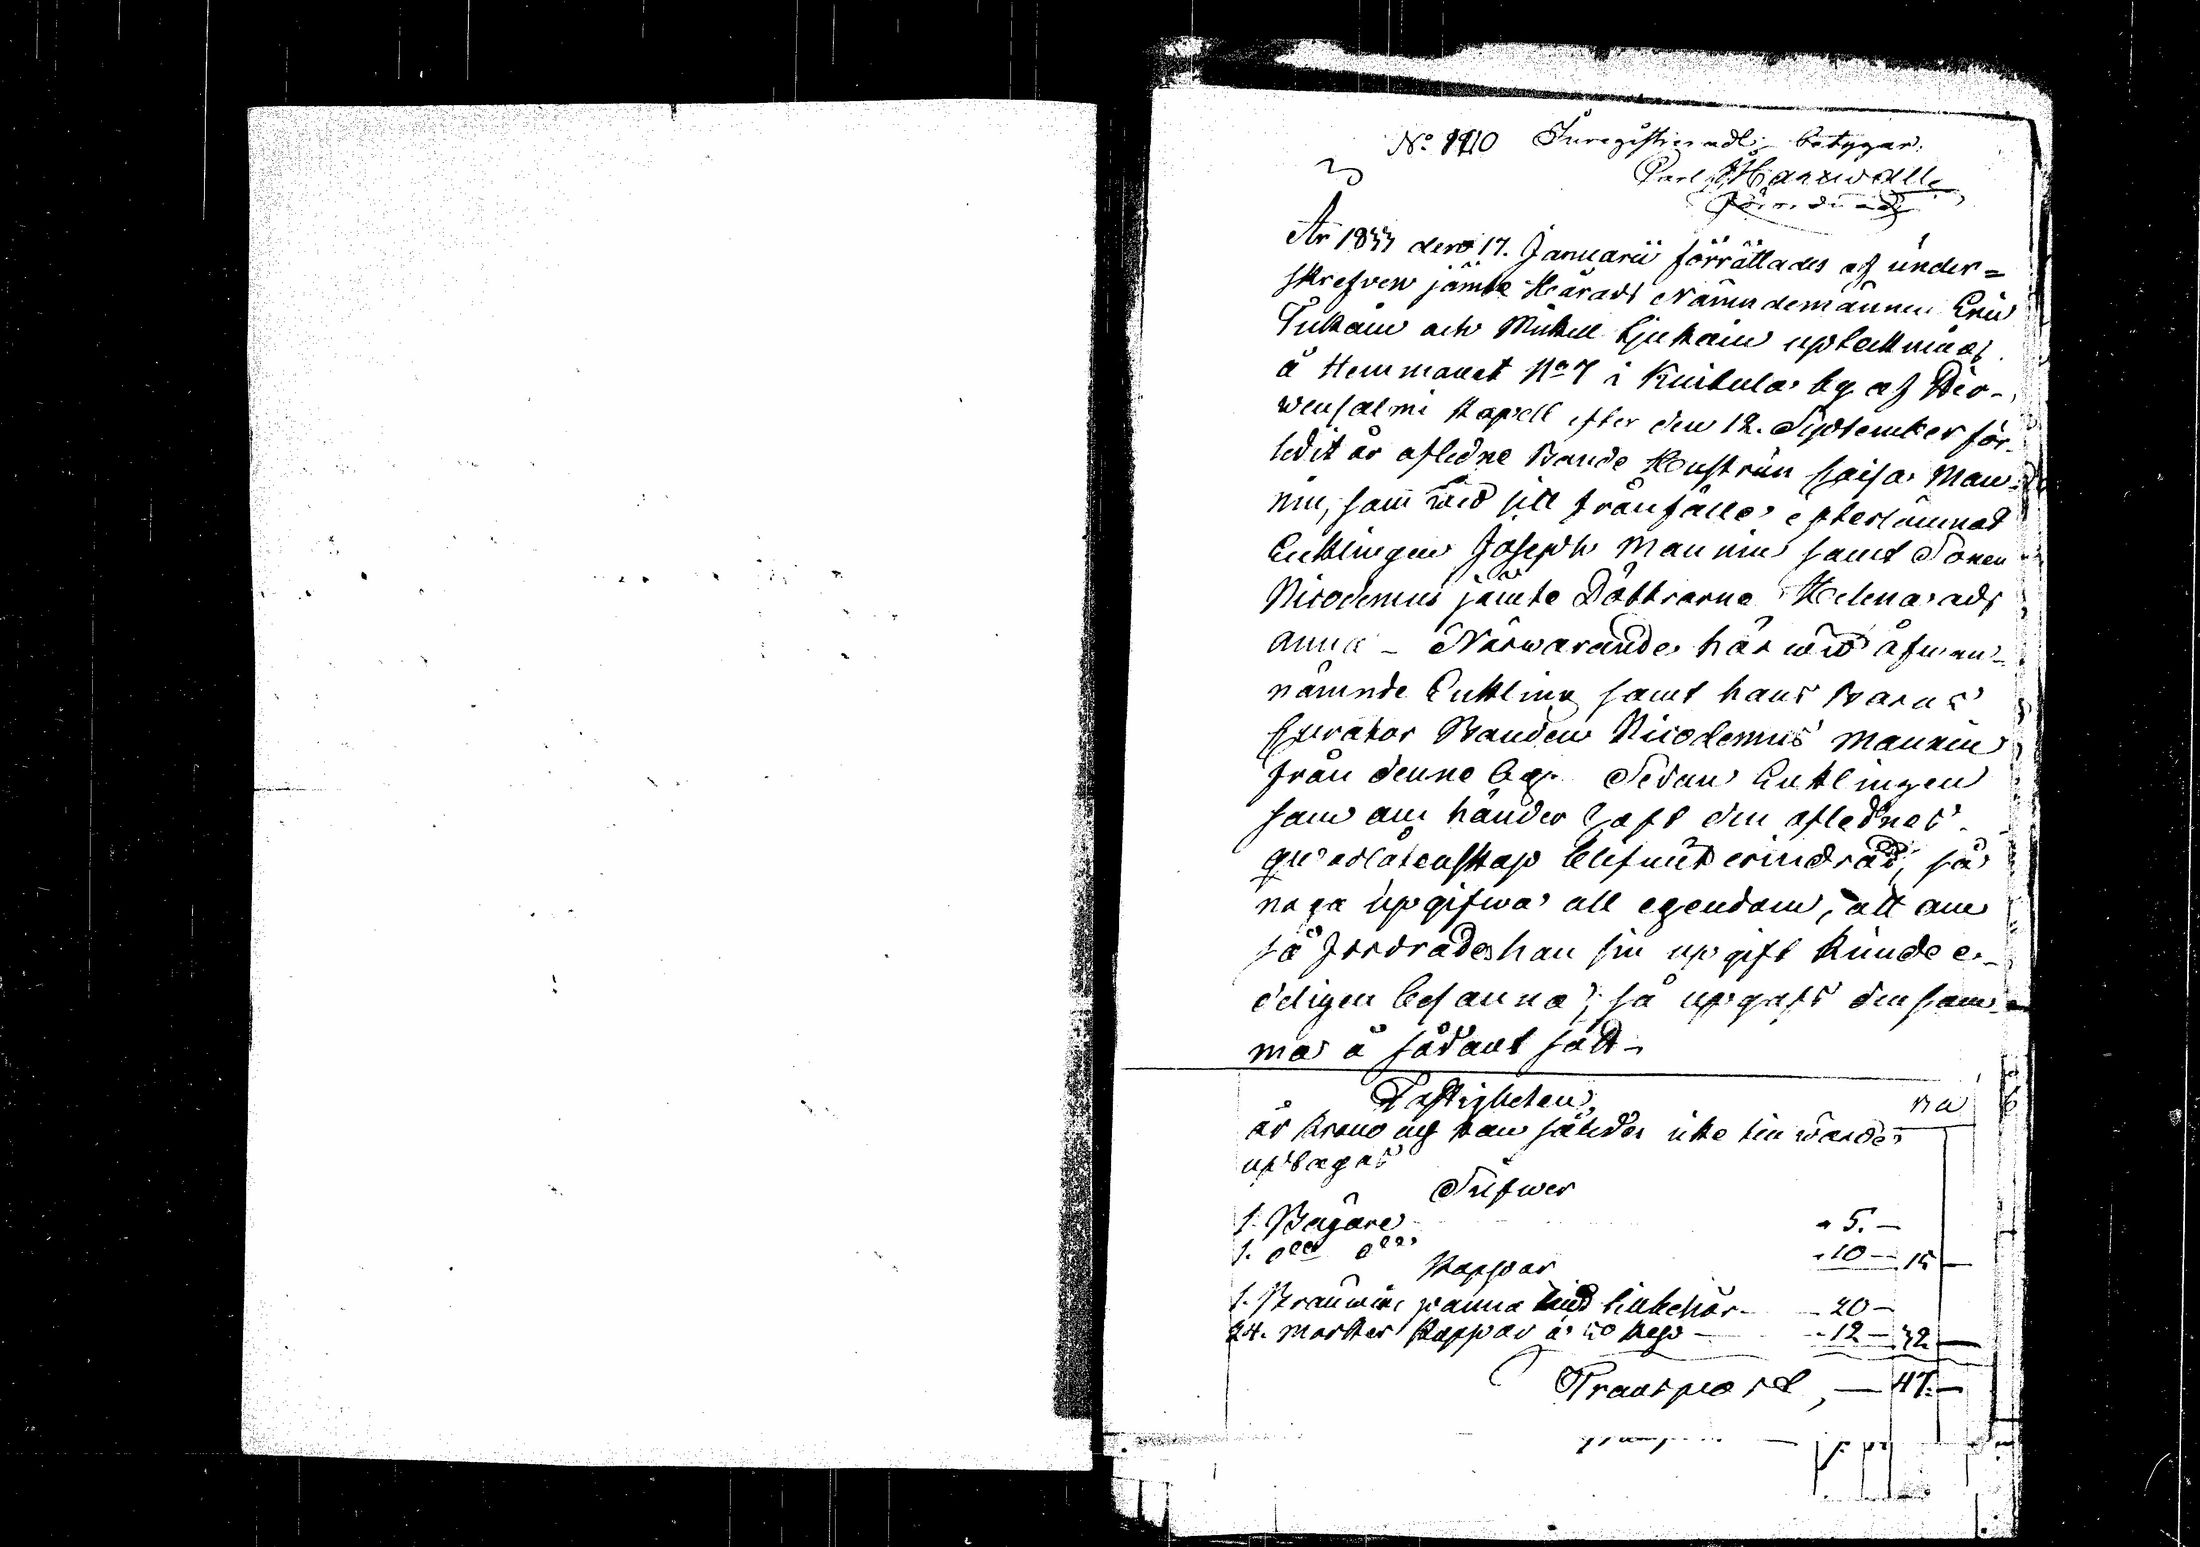 No 1110 Inregistreradt; betygar.
Carl Harwall
Förordnad
År 1833 den 17. Januarii förrättades af under=
skrefven jämte Härads Nämndemännen Eric
Tukain och Mickel Liukain upteckning
å Hemmanet No 7 i Kuitula by af Hir-
wensalmi Kapell efter den 12. September för-
ledit år aflidne Bonde Hustrun Caisa Man-
nin, som wid sitt frånfälle efterlämnat
Encklingen Joseph Mannin samt Sonen
Nicodemus jämte Döttrarna Helena och
Anna – Närwarande här wid åfwan-
nämnde Enkling samt hans Barns
Curator Bonden Nicodemus Mannin
från denne by. Sedan Enklingen
som om händer haft den aflednes
qwarlåtenskap blifwit erindrad, så
noga upgifwa all egendom, att om
så fordrades han sin upgift kunde e-
deligen besanna; så upgafs den sam-
ma å sådant sätt –
Fastigheten
är Krono och kan således icke till wärde
uptagas
Silfwer
1. Bägare " 5. —
1. dito dito " 10 — 15 —
Koppar
1. Bränwins panna med tillbehör — 20 —
24. marker Koppar à 50 kop — 12 — 32 —
Transport, — 47. —